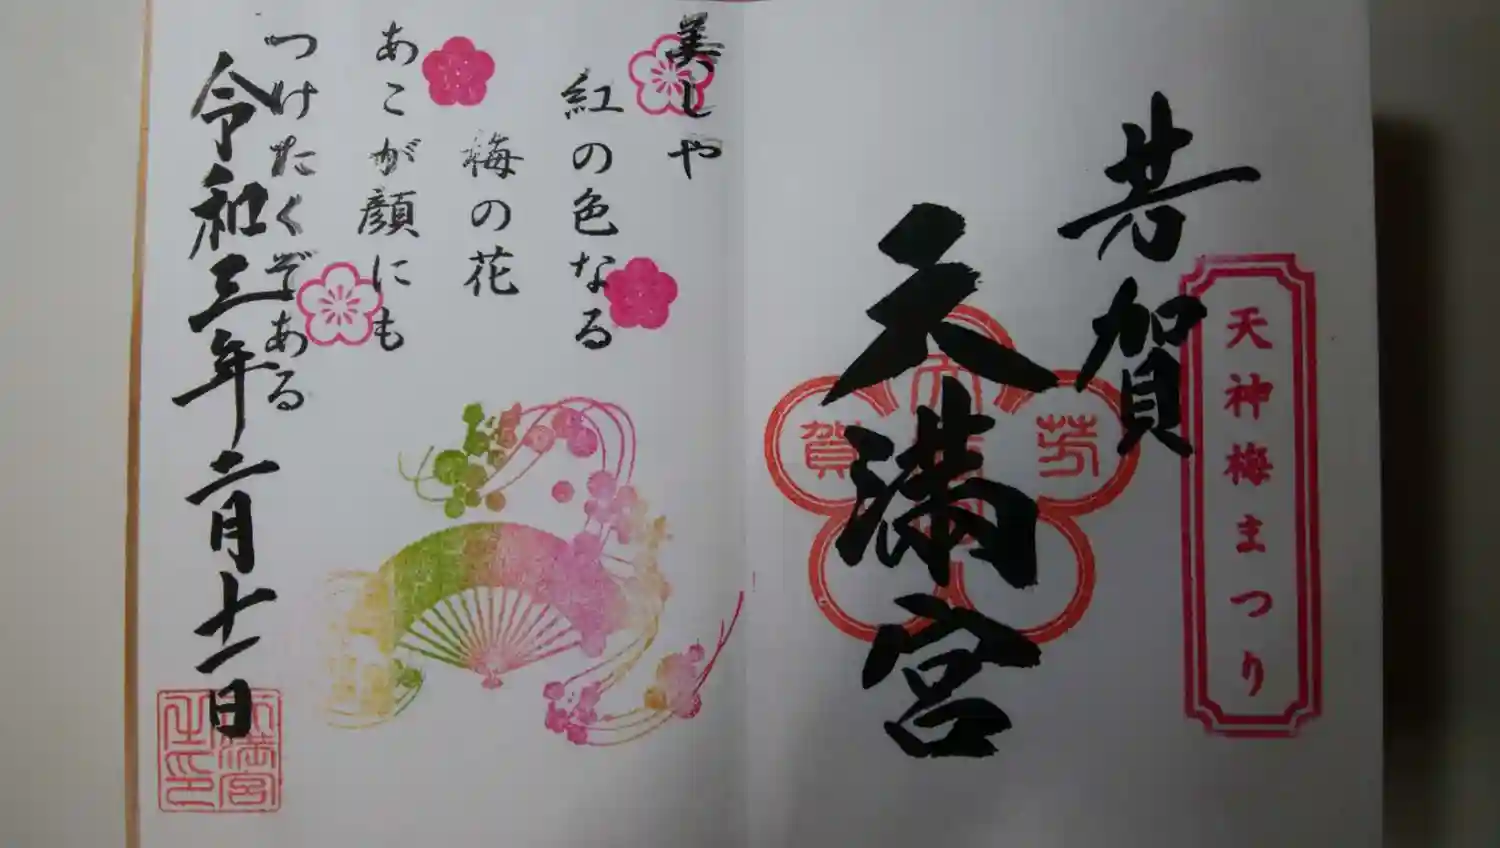 天神梅まつり
芳賀
天満宮
芳
賀
美しや
紅の色なる
梅の花
あこが顔にも
つけたくぞある
令和三年二月十一日
天満宮
之印